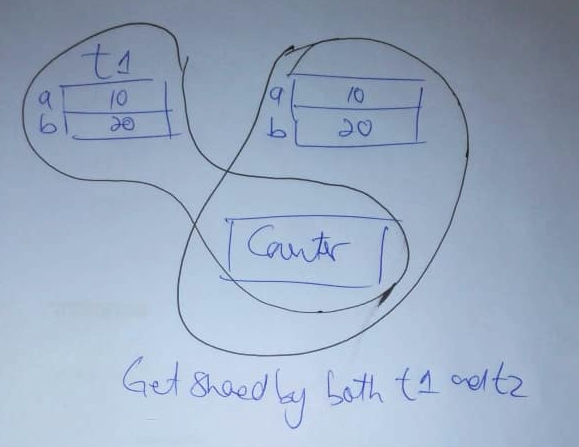 t1
a 10
b 20
a 10
b 20
Counter
Get shared by both t1 and t2